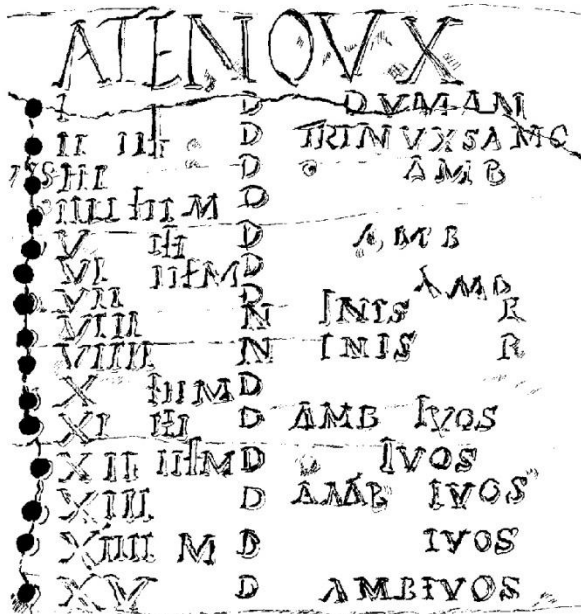 ATENOVX
I ƚ D DVMAN
II IIƚ D TRINVXSAMO
III D AMB
IIII ƚII M D
V IƚI D AMB
VI IIƚ M D
VII D AMB
VIII N INIS R
VIIII N INIS R
X ƚII M D
XI IƚI D AMB IVOS
XII IIƚ M D IVOS
XIII D AMB IVOS
XIIII M D IVOS
XV D AMB IVOS